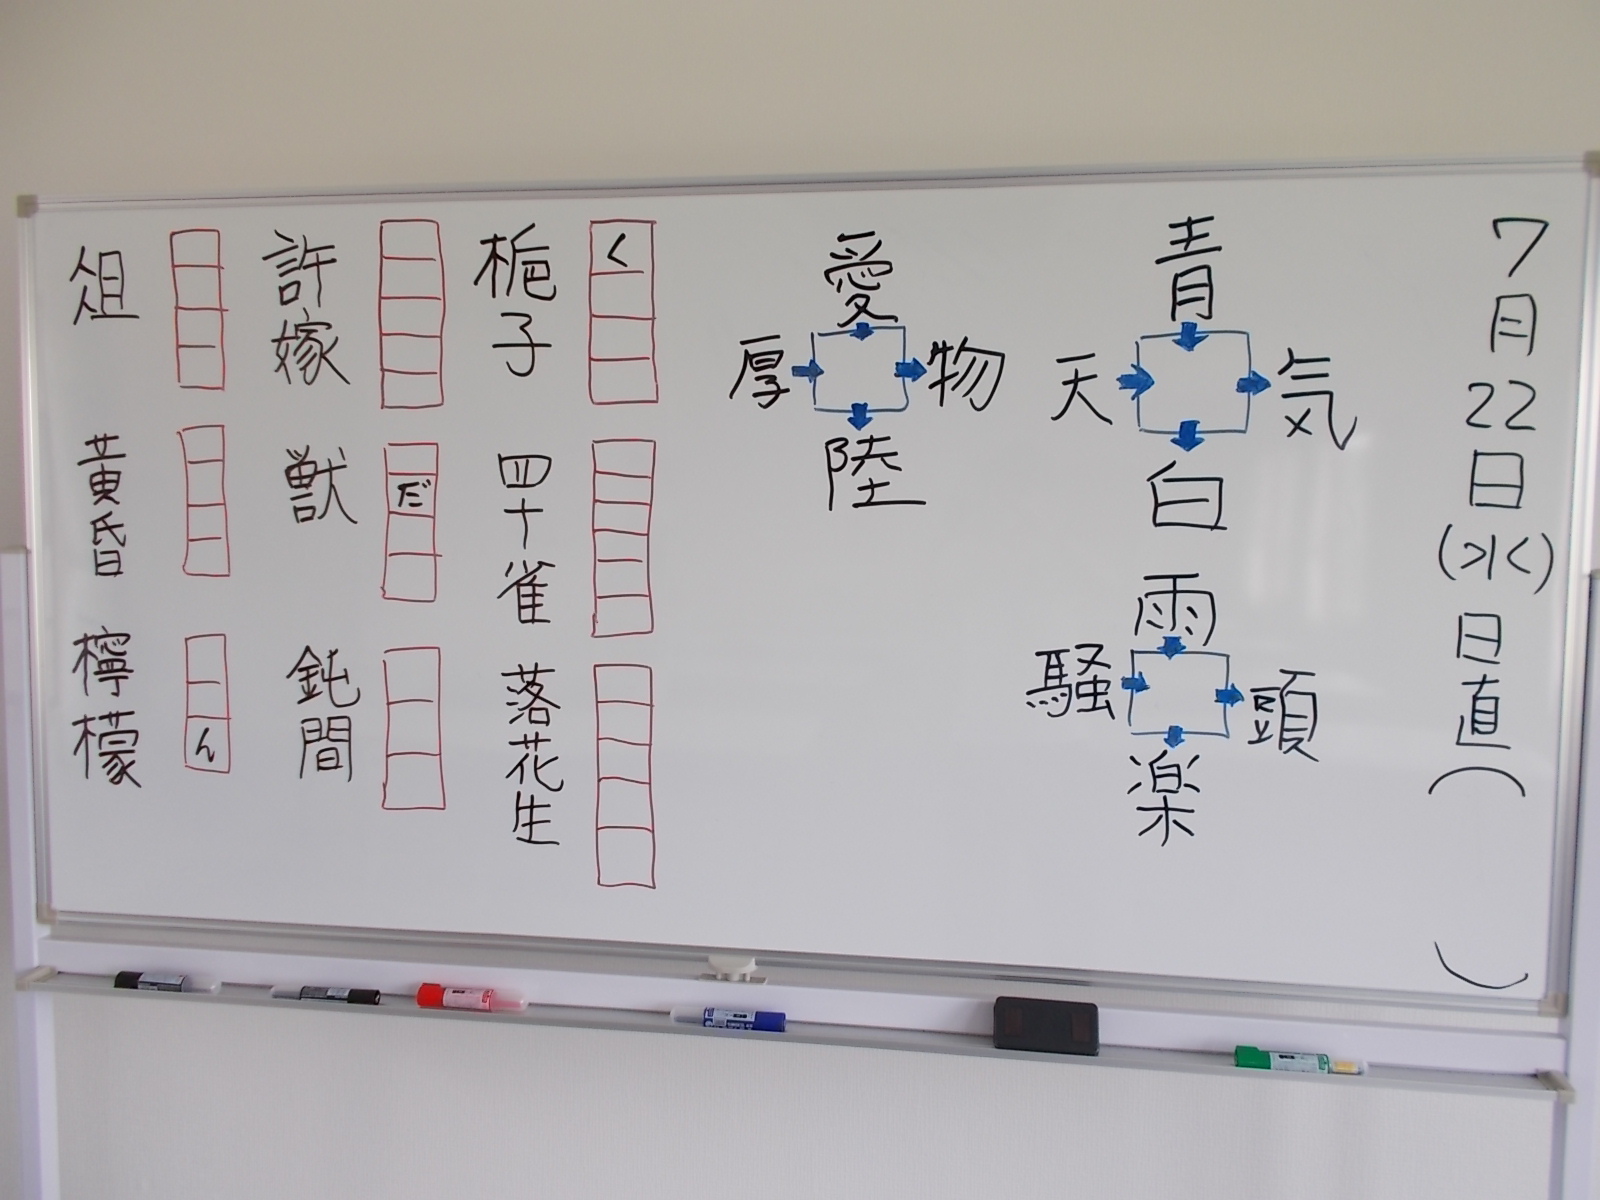 7月22日(水)日直(　)
青
天
気
白
雨
騒
頭
楽
愛
厚
物
陸
く
梔子
四十雀
落花生
許嫁
だ
獣
鈍間
俎
黄昏
ん
檸檬